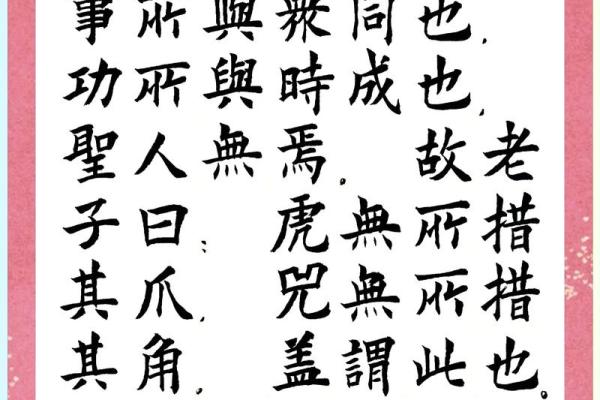 事所與衆同也，
功所與時成也，
聖人無焉。故老
子曰：虎無所措
其爪，兕無所措
其角，盖謂此也。